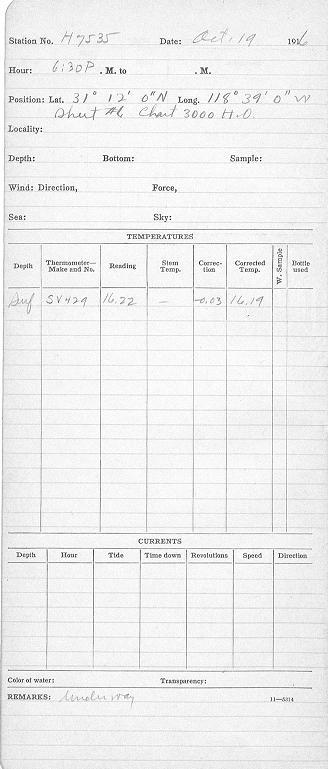 Station No. H7535 Date: Oct. 19 1916
Hour: 6:30P . M. to . M.
Position: Lat. 31° 12' 0"N Long. 118° 39' 0" W
Sheet #6 Chart 3000 H.O.
Locality:
Depth: Bottom: Sample:
Wind: Direction, Force,
Sea: Sky:
TEMPERATURES
Depth Thermometer—Make and No. Reading Stem Temp. Correction Corrected Temp. W. Sample Bottle used
Surf SV429 16.22 — -0.03 16.19
CURRENTS
Depth Hour Tide Time down Revolutions Speed Direction
Color of water: Transparency:
REMARKS: Underway 11—5314